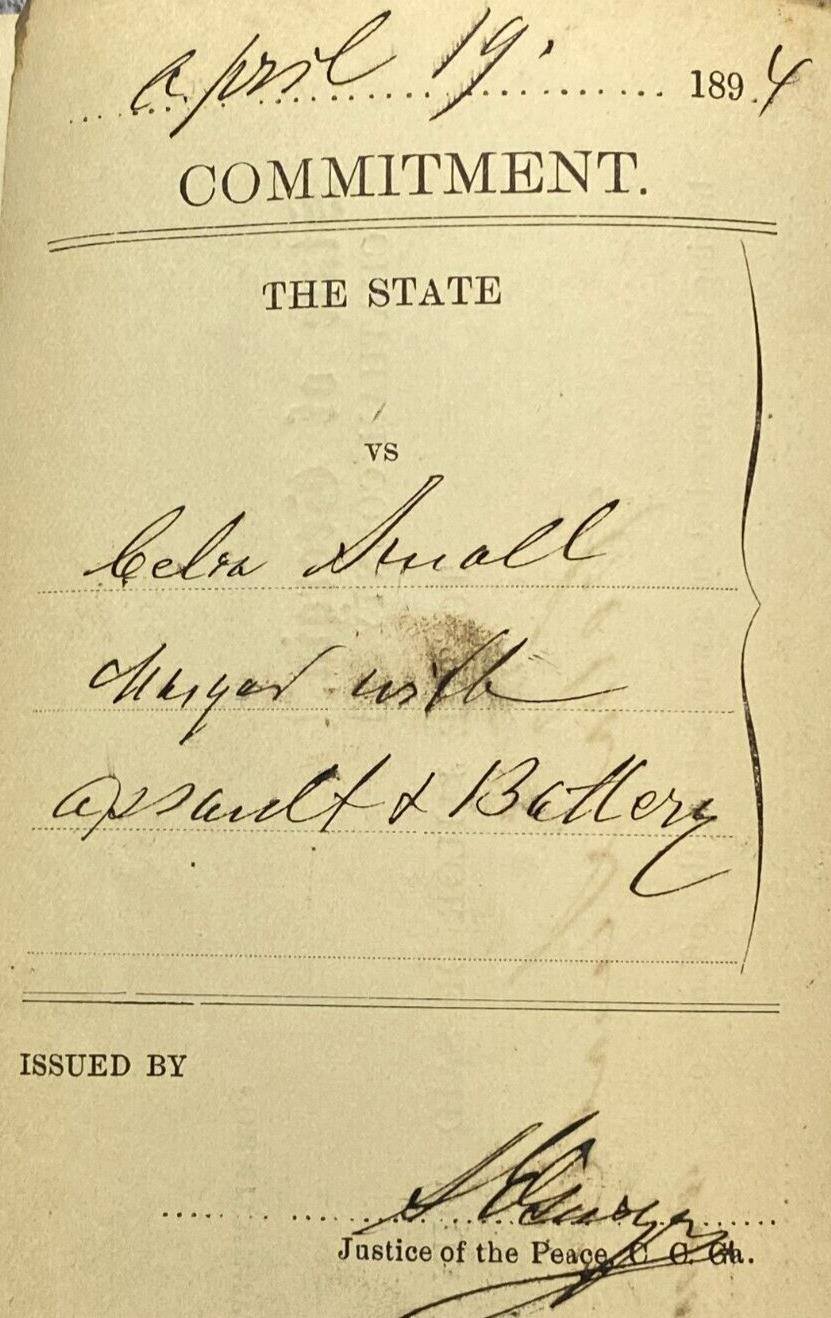 April 19. 1894
COMMITMENT.
THE STATE
vs
Celia Small
Charged with
Assault & Battery
ISSUED BY
Justice of the Peace, C. C. Ga.